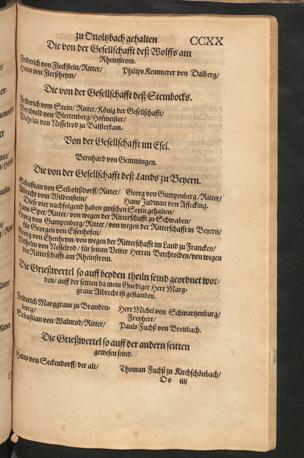 zu Onoltzbach gehalten CCXX
Die von der Gesellschafft deß Wolffs am
Rheinstrom.
Friderich von Fleckstein/Ritter/ Philips Kemmerer von Dalberg/
Hans von Flerßheym/
Die von der Gesellschafft deß Steinbocks.
Friderich vom Stein/Ritter/König der Gesellschafft/
von Plettenberg/Hofmeister/
Wilhelm von Nesselrod zu
Von der Gesellschafft im Esel.
Bernhard von Gemmingen.
Die von der Gesellschafft deß Lands zu Beyern.
Sebastian von Seiboltzdorff/Ritter/ Georg von Gumpenberg/Ritter/
Albrecht von Wildenstein/ Hans Zudman von Affecking.
Diese vier nachfolgend haben zwischen Seyln gehalten/
Hans Spet/Ritter/von wegen der Ritterschafft zu Schwaben/
Georg von Gumpenberg/Ritter/von wegen der Ritterschafft in Beyern/
für Georgen von Eisenhofen/
Georg von Ehenheym/von wegen der Ritterschafft im Land zu Francken/
Wilhelm von Nesselrod/für seinen Vetter Herren Bertholden/von wegen
der Ritterschafft am Rheinstrom.
Die Grießwertel so auff beyden theiln seind geordnet wor-
den/auff der seitten da mein Gnediger Herr Marg-
graue Albrecht ist gestanden.
Friderich Marggraue zu Branden- Herr Michel von Schwartzenburg/
burg/ Freyherr/
Sebastian von Walnrod/Ritter/ Pauls Fuchß von Breitbach.
Die Grießwertel so auff der andern seitten
gewesen seind.
Hans von Seckendorff/der alt/ Thoman Fuchß zu Kirchschönbach/
Oo iiij